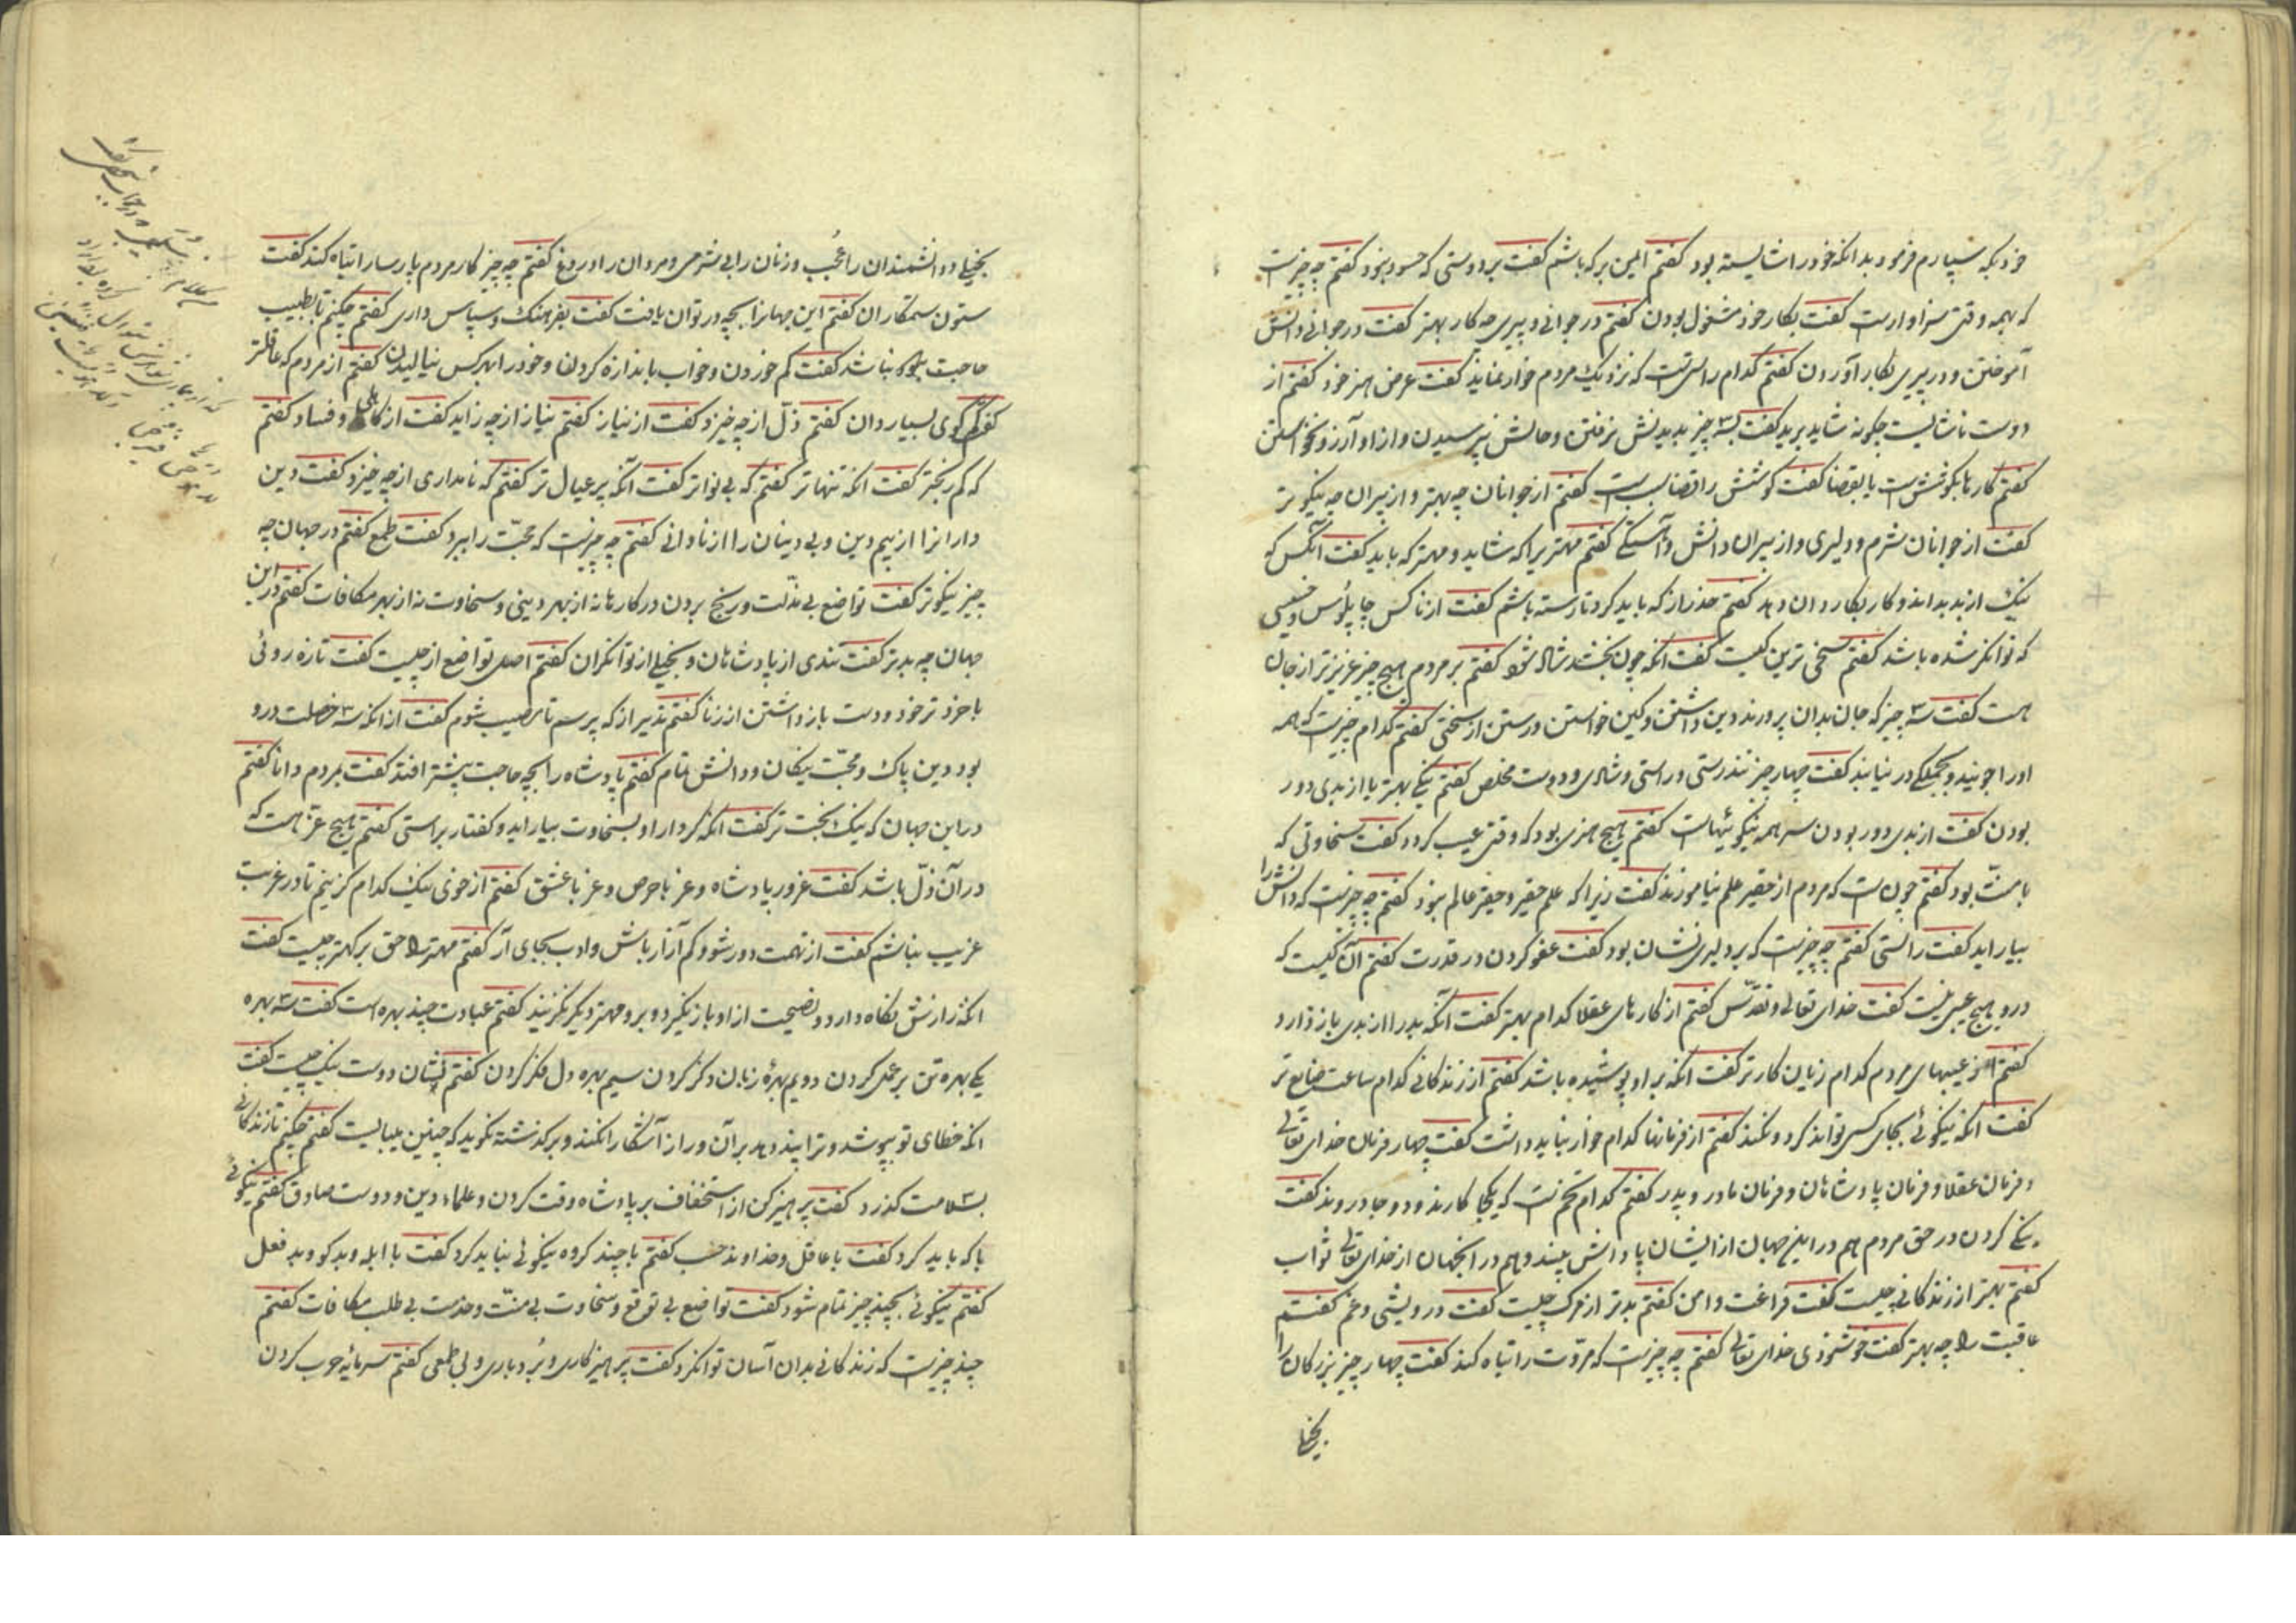 خود بکه سپارم فرمود بدانکه خود را شایسته بود گفتم ایمن بر که باشم گفت بر دوستی که حسود نبود گفتم چه چیزست
که بهمه وقتی سزاوارست گفت بکار خود مشغول بودن گفتم در جوانی و پیری چه کار بهتر گفت در جوانی دانش
آموختن و در پیری بکار آوردن گفتم کدام راستی‌ست که نزدیک مردم خوار نماید گفت عرض هنر خود گفتم از
دوست ناشایست چکونه شاید برید گفت بسه چیز بدیدنش نرفتن و حالش نپرسیدن و از او آرزو نخواستن
گفتم کارها بکوشش‌ست یا بقضا گفت کوشش را قضا سبب‌ست گفتم از جوانان چه بهتر و از پیران چه نیکوتر
گفت از جوانان شرم و دلیری و از پیران دانش و آهستگی گفتم مهتری را که شاید و مهتر که باید گفت آنکس که
نیک از بد بداند و کار بکاردان دهد گفتم حذر از که باید کرد تا رسته باشم گفت از ناکس چاپلوس و خسیسی
که توانکر شده باشد گفتم سخی ترین کیست گفت آنکه چون بخشد شاد شود گفتم بر مردم هیچ چیز عزیزتر از جان
هست گفت سه چیز که جان بدان پرورند دین داشتن و کین خواستن و رستن از سختی گفتم کدام چیزست که همه
او را جویند و بجملکی در نیابند گفت چهار چیز تندرستی و راستی و شادی و دوست مخلص گفتم نیکی بهتر یا از بدی دور
بودن گفت از بدی دور بودن سر همه نیکوئیهاست گفتم هیچ هنری بود که وقتی عیب کردد گفت سخاوتی که
با منت بود گفتم چون‌ست که مردم از حقیر علم نیاموزند گفت زیرا که علم حقیر و حقیر عالم نبود گفتم چه چیزست که دانش را
بیاراید گفت راستی گفتم چه چیزست که بر دلیری نشان بود گفت عفو کردن در قدرت گفتم آن کیست که
درو هیچ عیبی نیست گفت خدای تعالی و تقدس گفتم از کارهای عقلا کدام بهتر گفت آنکه بد را از بدی باز دارد
گفتم از عیبهای مردم کدام زیان کارتر گفت آنکه بر او پوشیده باشد گفتم از زندکانی کدام ساعت ضایع تر
گفت آنکه نیکوئی بجای کسی تواند کرد و نکند گفتم از فرمانها کدام خوار نباید داشت گفت چهار فرمان خدای تعالی
و فرمان عقلا و فرمان پادشاهان و فرمان مادر و پدر گفتم کدام تخم‌ست که یکجا کارند و دو جا دروند گفت
نیکی کردن در حق مردم هم در این جهان از ایشان پاداش بینند و هم در آنجهان از خدای تعالی ثواب
گفتم بهتر از زندکانی چیست گفت فراغت و امن گفتم بدتر از مرک چیست گفت درویشی و غم گفتم
عاقبت را چه بهتر گفت خوشنودی خدای تعالی گفتم چه چیزست که مروّت را تباه کند گفت چهار چیز بزرکان را
بخیلی
بخیلی و دانشمندان را عُجب و زنان را بی شرمی و مردان را دروغ گفتم چه چیز کار مردم پارسا را تباه کند گفت
ستودن ستمکاران گفتم این جهانرا بچه در توان یافت گفت بفرهنک و سپاس داری گفتم چکنم تا بطبیب
حاجت نباشد گفت کم خوردن و خواب باندازه کردن و خود را بهر کس نیالیدن گفتم از مردم که عاقلتر
گفت کم کوی بسیار دان گفتم ذلّ از چه خیزد گفت از نیاز گفتم نیاز از چه زاید گفت از کاهلی و فساد گفتم
که کم رنجتر گفت آنکه تنهاتر گفتم که بی نواتر گفت آنکه پر عیال تر گفتم که نامداری از چه خیزد گفت دین
دارانرا از بیم دین و بی دینان را از نادانی گفتم چه چیزست که محبّت را ببرد گفت طمع گفتم در جهان چه
چیز نیکوتر گفت تواضع بی مذلّت و رنج بردن در کارها نه از بهر دینی و سخاوت نه از بهر مکافات گفتم در این
جهان چه بدتر گفت تندی از پادشاهان و بخیلی از توانکران گفتم اصل تواضع از چیست گفت تازه روئی
با خودتر خود و دست باز داشتن از زنا گفتم تدبیر از که پرسم تا مصیب شوم گفت از آنکه سه خصلت درو
بود دین پاک و محبّت نیکان و دانش تمام گفتم پادشاه را بچه حاجت بیشتر افتد گفت بمردم دانا گفتم
در این جهان که نیک بخت تر گفت آنکه کردار او بسخاوت بیاراید و کفتار براستی گفتم هیچ عزّ هست که
در آن ذلّ باشد گفت غرور پادشاه و عز با حرص و عز با عشق گفتم از خوی نیک کدام کزینم تا در غربت
غریب نباشم گفت از تهمت دور شو و کم آزار باش و ادب بجای آر گفتم مهتر را حق بر کهتر چیست گفت
آنکه رازش نکاه دارد و نصیحت از او باز نگیرد و برو مهتر دیکر نکزیند گفتم عبادت چند بهره است گفت سه بهره
یکی بهره تن بر عمل کردن دویم بهرهٔ زبان ذکر کردن سیم بهره دل فکر کردن گفتم نشان دوست نیک چیست گفت
آنکه خطای تو بپوشد و ترا پند دهد بر آن و راز آشکارا نکند و بر کذشته نگوید که چنین می‌بایست گفتم چکنم تا زندکانی
بسلامت کذرد گفت پرهیز کن از استخفاف بر پادشاه وقت کردن و علماء دین و دوست صادق گفتم نیکوئی
با که باید کرد گفت با عاقل و خداوند حسب گفتم با چند کروه نیکوئی نباید کرد گفت با ابله و بدکو و بد فعل
گفتم نیکوئی بچند چیز تمام شود گفت تواضع بی توقع و سخاوت بی منّت و خدمت بی طلب مکافات گفتم
چند چیزست که زندکانی بدان آسان توانکرد گفت پرهیزکاری و بُردباری و بی طمعی گفتم سرمایه حرب کردن